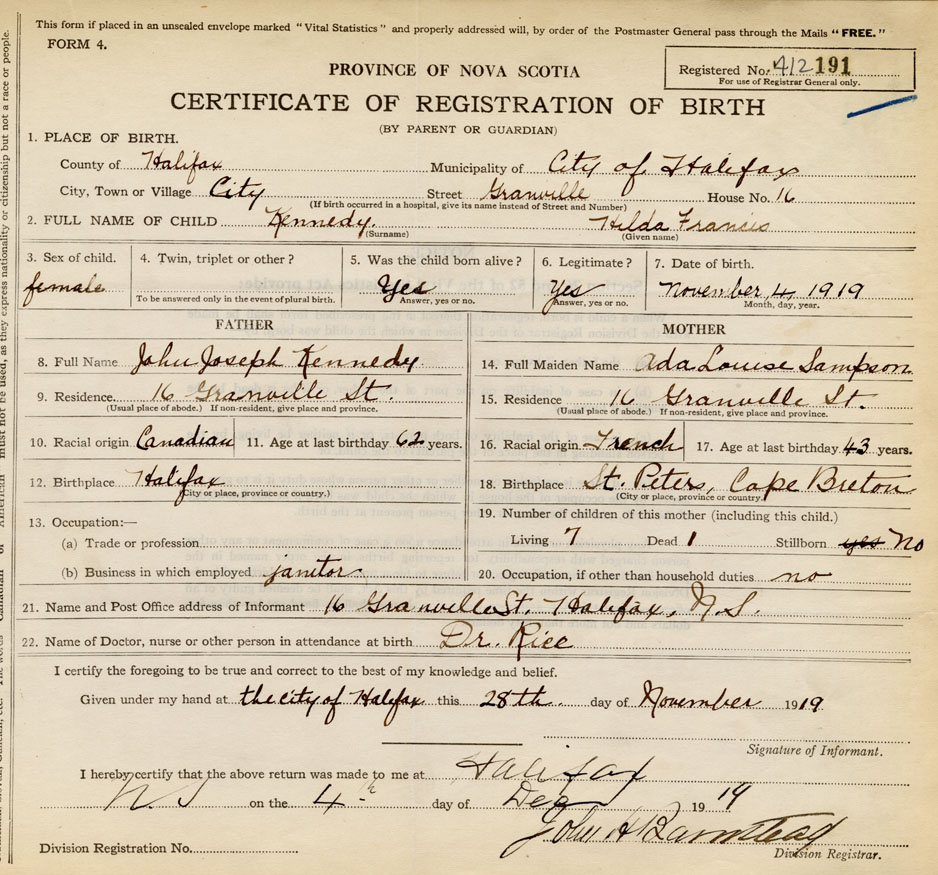 This form if placed in an unsealed envelope marked "Vital Statistics" and properly addressed will, by order of the Postmaster General pass through the Mails "FREE."
FORM 4.
Registered No. 412191
For use of Registrar General only.
PROVINCE OF NOVA SCOTIA
CERTIFICATE OF REGISTRATION OF BIRTH
(BY PARENT OR GUARDIAN)
1. PLACE OF BIRTH.
County of Halifax Municipality of City of Halifax
City, Town or Village City Street Granville House No. 16
(If birth occurred in a hospital, give its name instead of Street and Number)
2. FULL NAME OF CHILD Kennedy. Hilda Francis
(Surname) (Given name)
3. Sex of child. 4. Twin, triplet or other? 5. Was the child born alive? 6. Legitimate? 7. Date of birth.
female Yes Yes November, 4, 1919
To be answered only in the event of plural birth. Answer, yes or no. Answer, yes or no. Month, day, year.
FATHER MOTHER
8. Full Name John Joseph Kennedy. 14. Full Maiden Name Ada Louise Sampson.
9. Residence. 16 Granville St. 15. Residence 16 Granville St.
(Usual place of abode.) If non-resident, give place and province. (Usual place of abode.) If non-resident, give place and province.
10. Racial origin Canadian 11. Age at last birthday 62 years. 16. Racial origin French 17. Age at last birthday 43 years.
12. Birthplace Halifax 18. Birthplace St. Peters, Cape Breton
(City or place, province or country.) (City or place, province or country.)
13. Occupation:— 19. Number of children of this mother (including this child.)
(a) Trade or profession Living 7 Dead 1 Stillborn yes No
(b) Business in which employed janitor 20. Occupation, if other than household duties no
21. Name and Post Office address of Informant 16 Granville St. Halifax, N.S.
22. Name of Doctor, nurse or other person in attendance at birth Dr. Rice
I certify the foregoing to be true and correct to the best of my knowledge and belief.
Given under my hand at the city of Halifax this 28th day of November 1919.
Signature of Informant.
I hereby certify that the above return was made to me at Halifax
N S on the 4th day of Dec 1919
John H Barnstead
Division Registration No. Division Registrar.
must not be used, as they express nationality or citizenship but not a race or people.